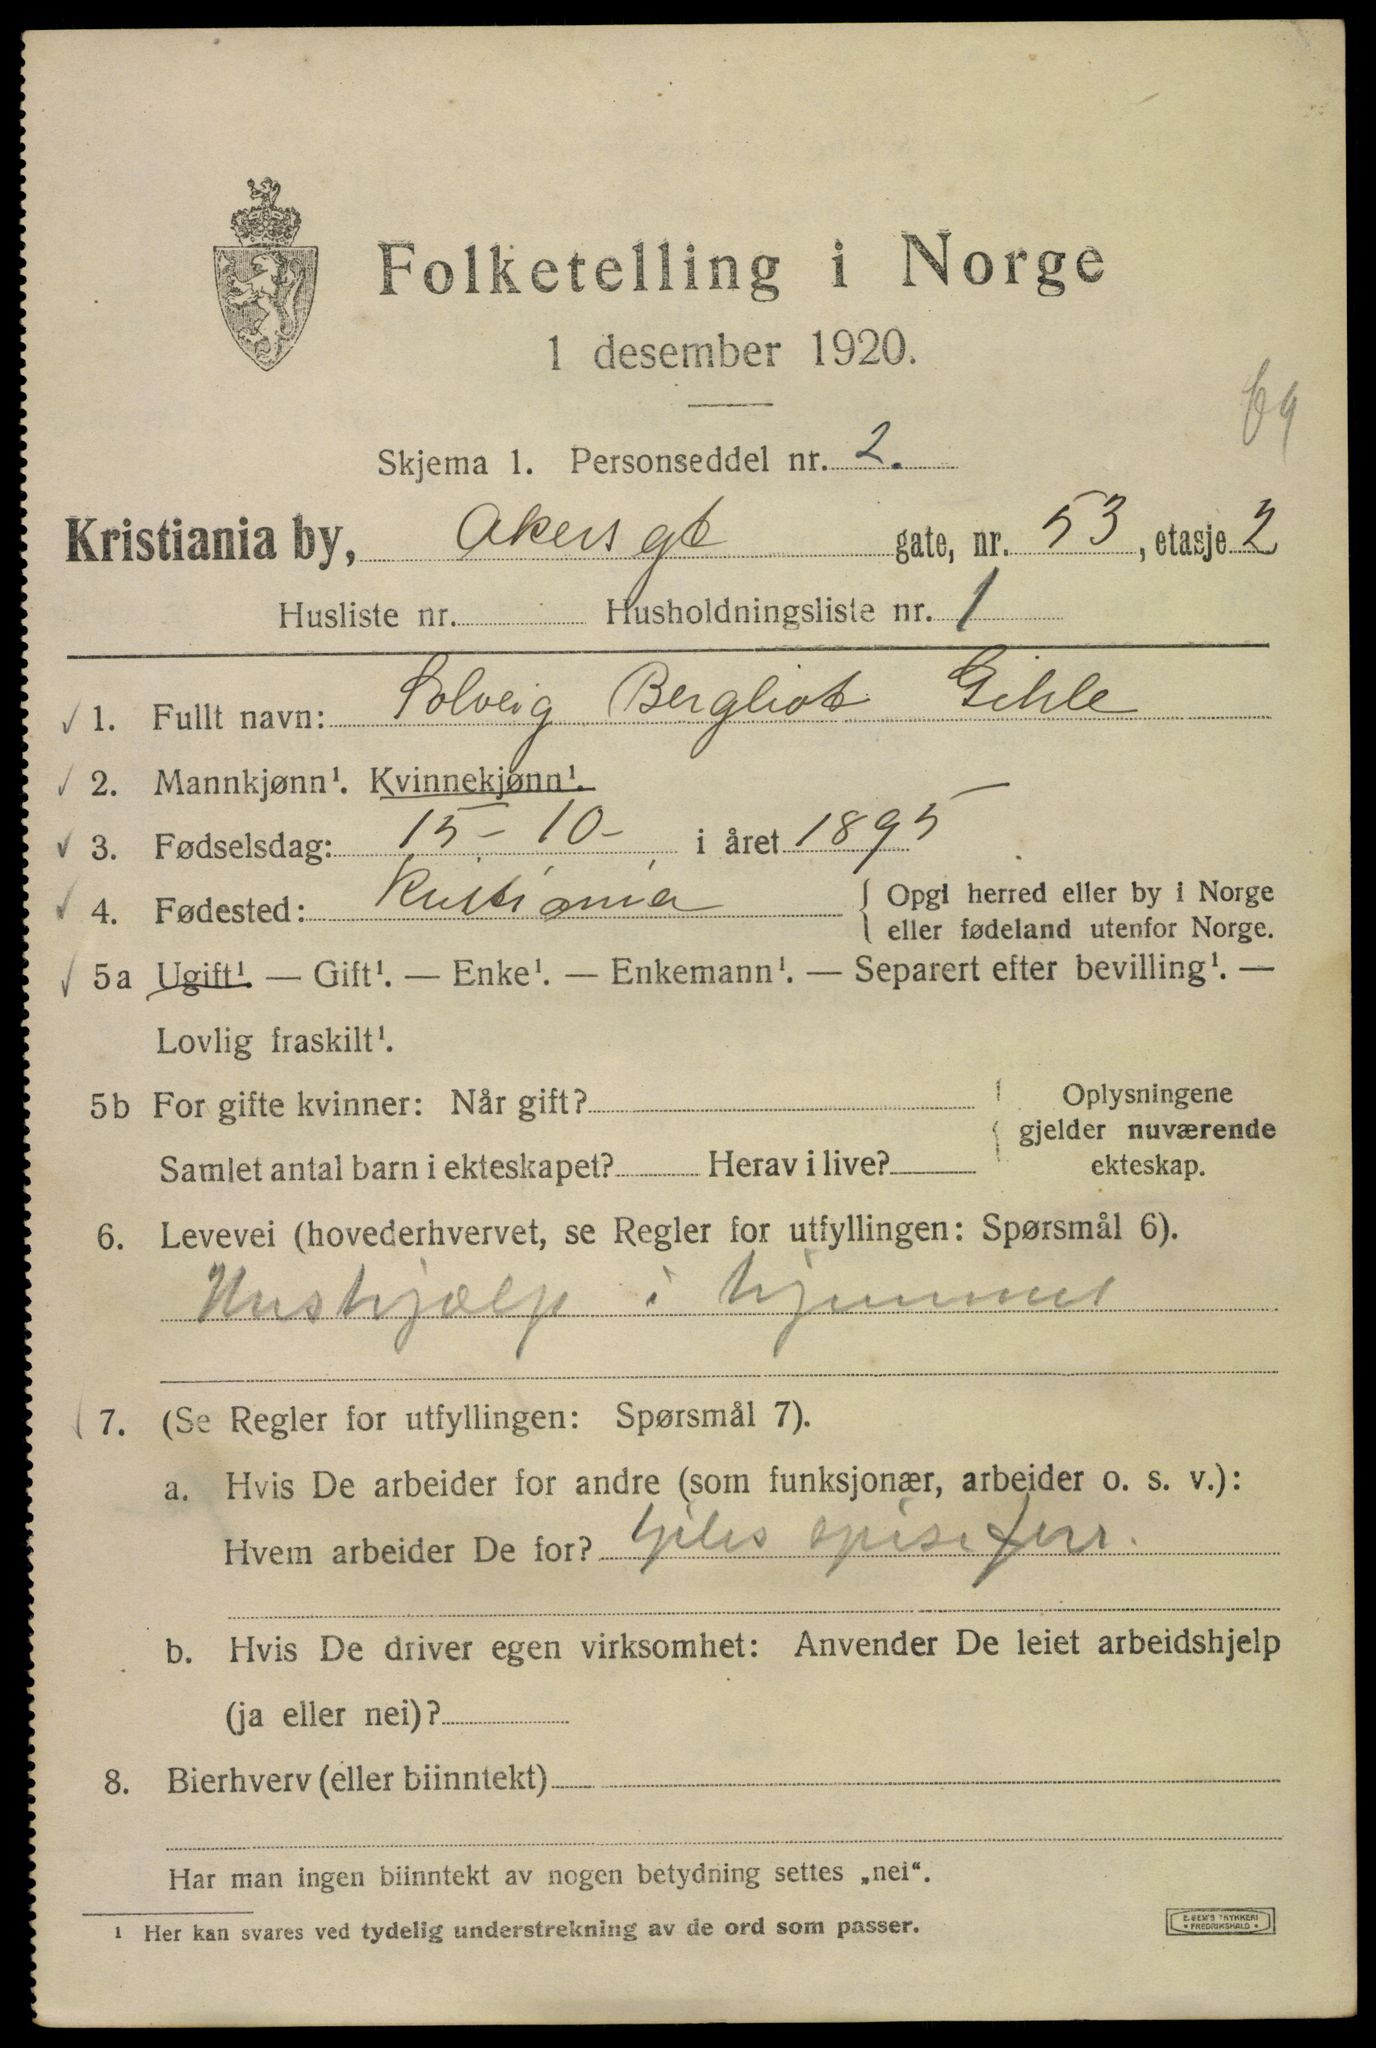 Folketelling i Norge
1 desember 1920.
Skjema 1. Personseddel nr. 2.
Kristiania by, Akersgt gate, nr. 53, etasje 2
Husliste nr. Husholdningsliste nr. 1
1. Fullt navn: Solveig Bergliot Gihle
2. Mannkjønn¹. Kvinnekjønn¹.
3. Fødselsdag: 15-10- i året 1895
4. Fødested: Kristiania { Opgi herred eller by i Norge
eller fødeland utenfor Norge.
5a Ugift¹. — Gift¹. — Enke¹. — Enkemann¹. — Separert efter bevilling¹. —
Lovlig fraskilt¹.
5b For gifte kvinner: Når gift? { Oplysningene
gjelder nuværende
Samlet antal barn i ekteskapet? Herav i live? ekteskap.
6. Levevei (hovederhvervet, se Regler for utfyllingen: Spørsmål 6).
Hushjælp i hjemmet
7. (Se Regler for utfyllingen: Spørsmål 7).
a. Hvis De arbeider for andre (som funksjonær, arbeider o. s. v.):
Hvem arbeider De for?
b. Hvis De driver egen virksomhet: Anvender De leiet arbeidshjelp
(ja eller nei)?
8. Bierhverv (eller biinntekt)
Har man ingen biinntekt av nogen betydning settes „nei“.
¹ Her kan svares ved tydelig understrekning av de ord som passer.
TRYKKERI
FREDRIKSHALD